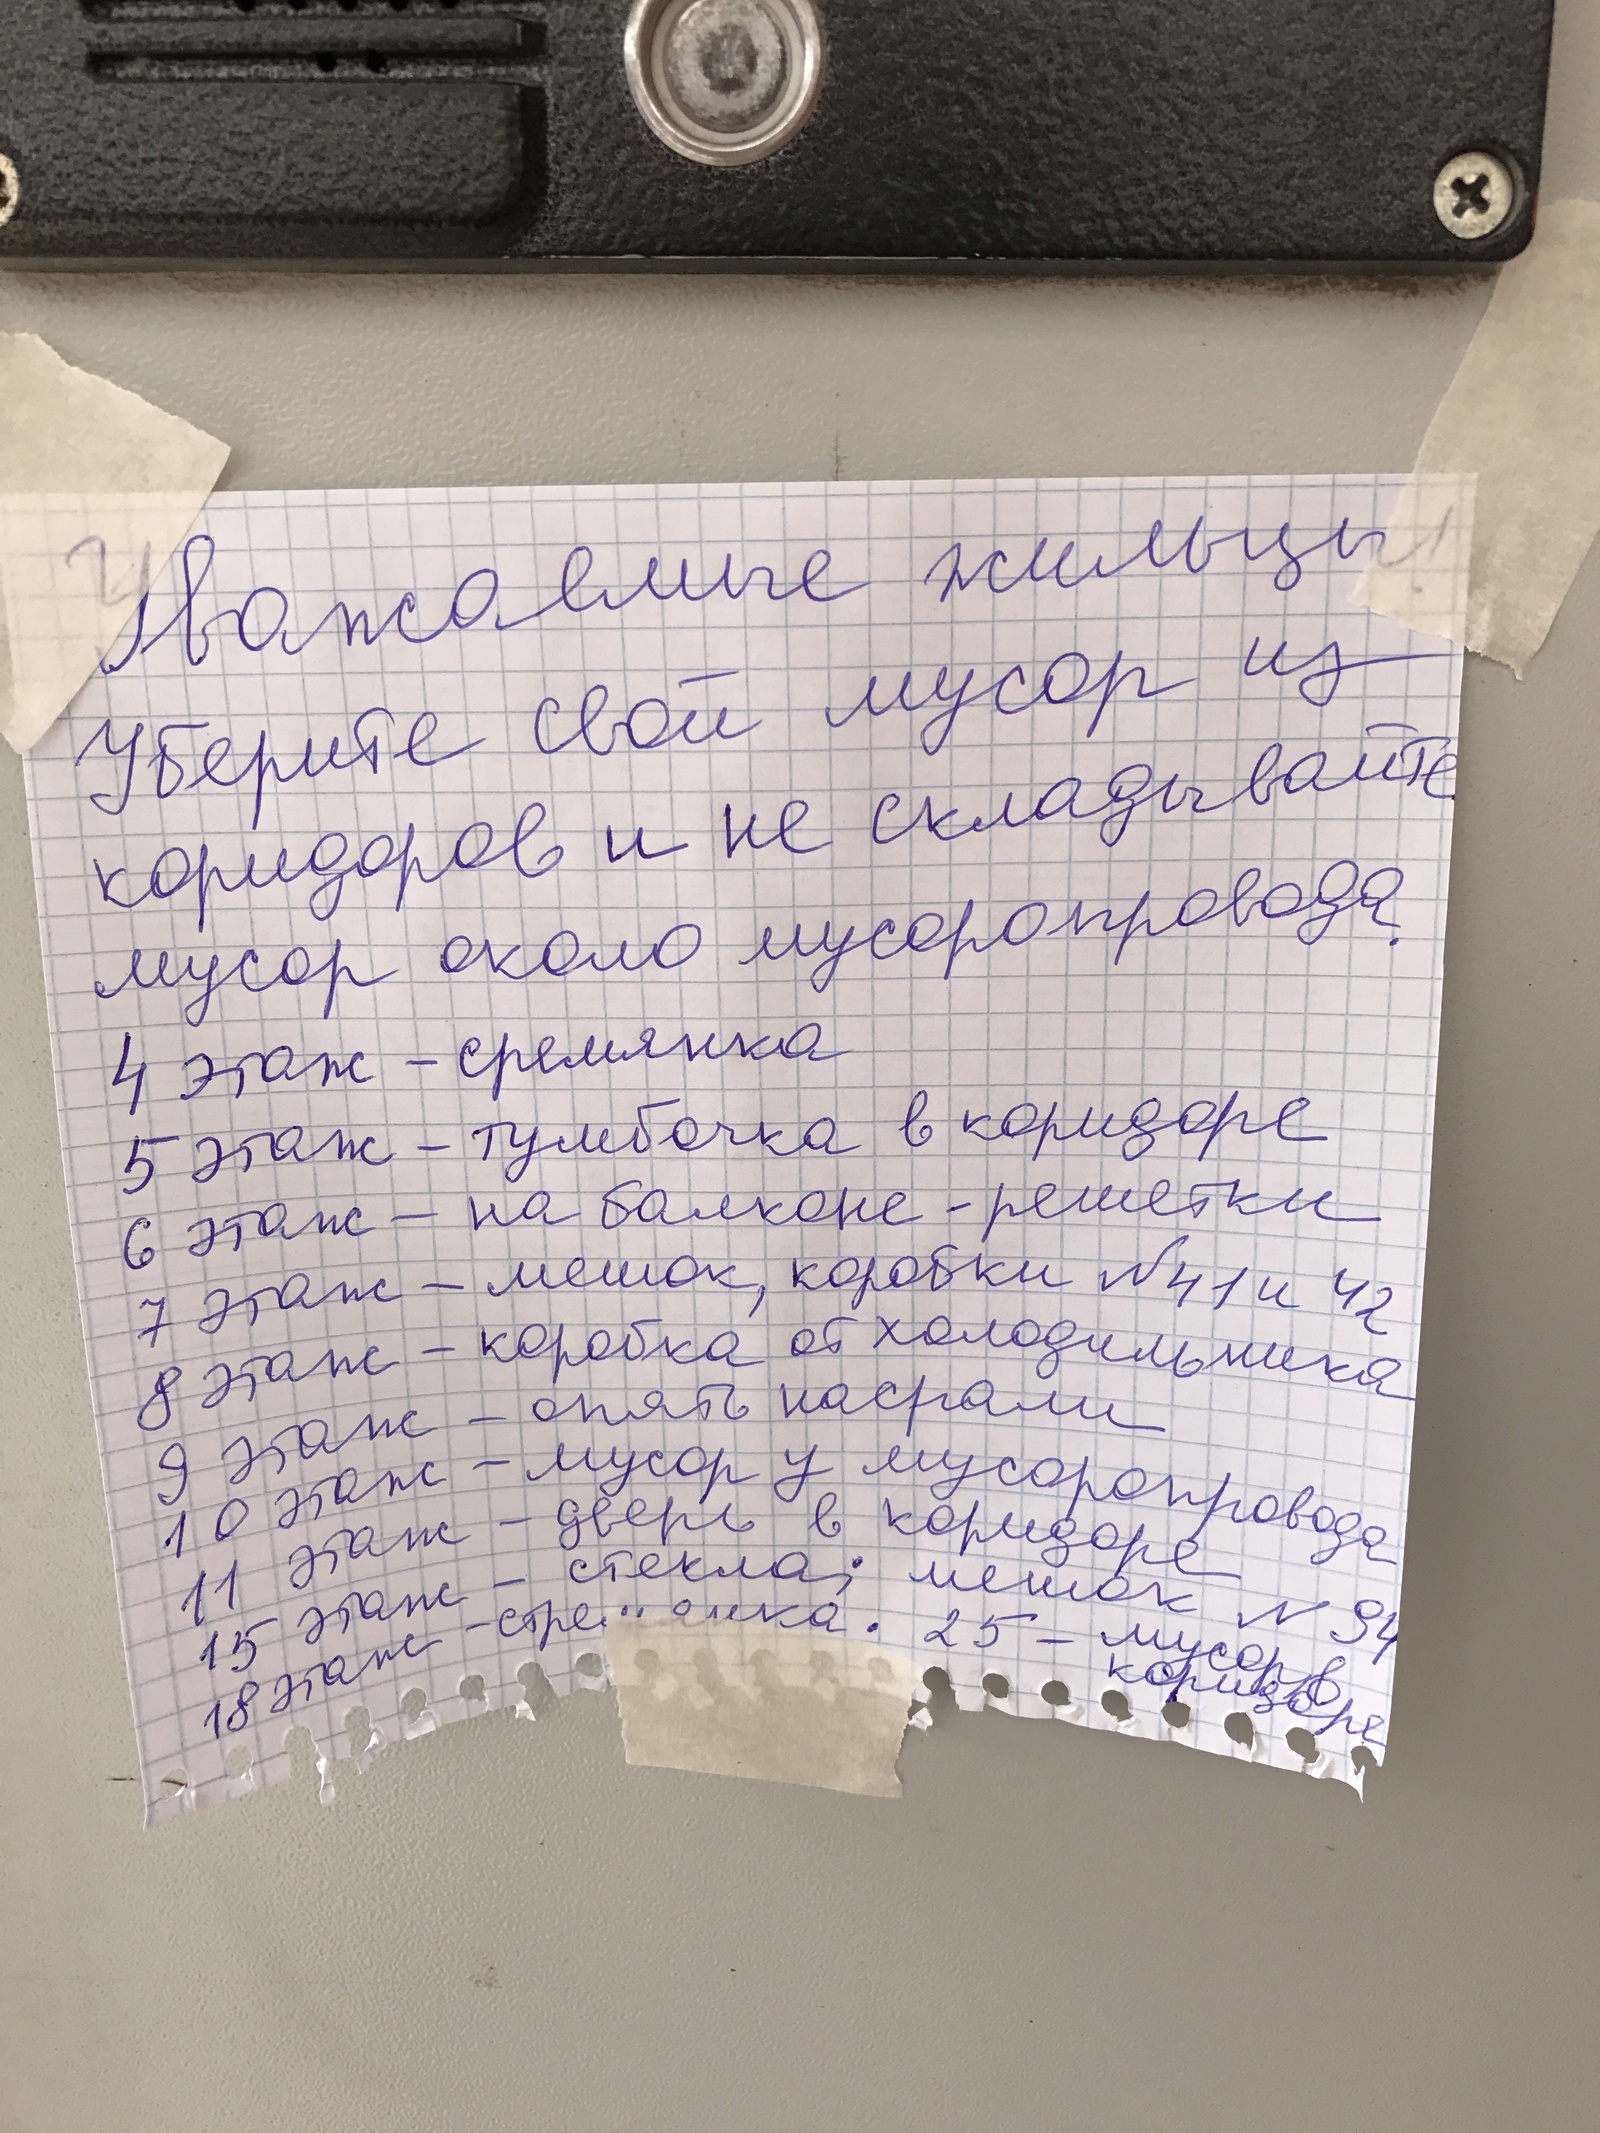 Уважаемые жильцы!
Уберите свой мусор из
коридоров и не складывайте
мусор около мусоропровода.
4 этаж - сремянка
5 этаж - тумбочка в коридоре
6 этаж - на балконе - решетки
7 этаж - мешок, коробки №41 и 42
8 этаж - коробка от холодильника
9 этаж - опять насрали
10 этаж - мусор у мусоропровода
11 этаж - дверь в коридоре
15 этаж - стекла; мешок № 94
18 этаж - стремянка. 25 - мусор в
коридоре